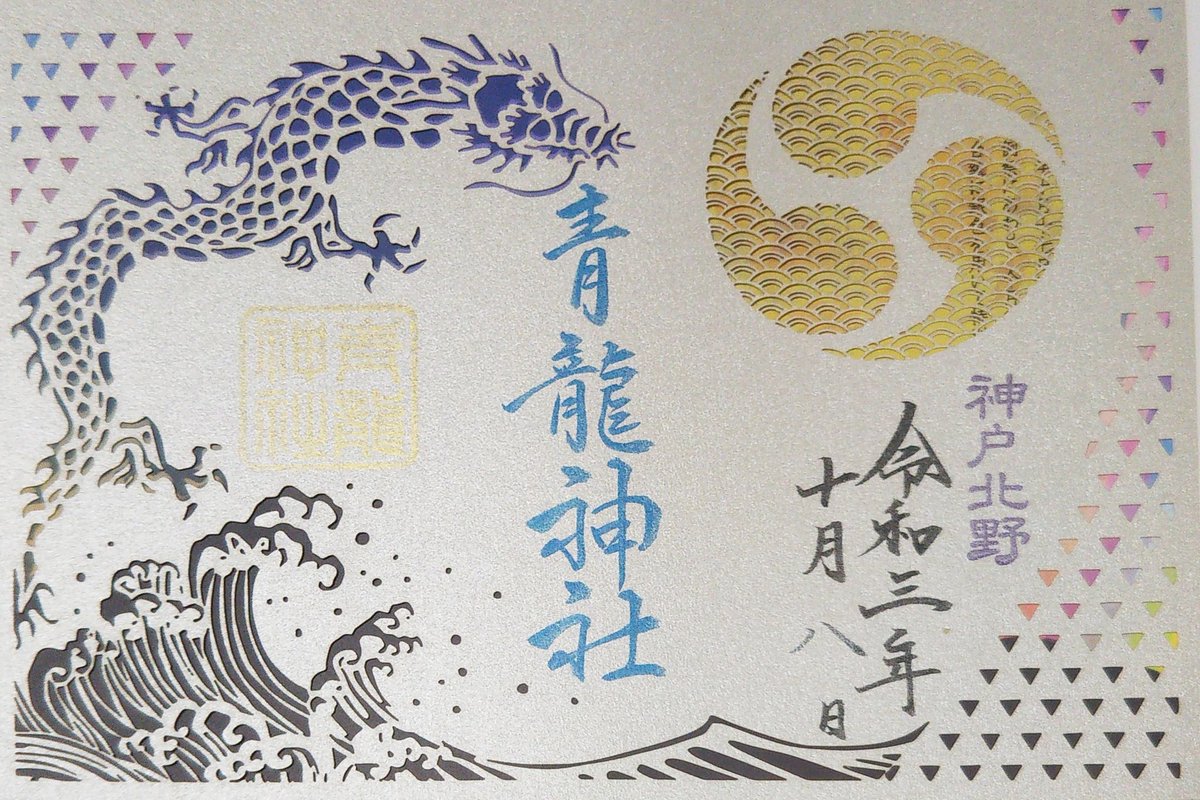 神戸北野
令和三年
十月八日
青龍神社
青龍
神社